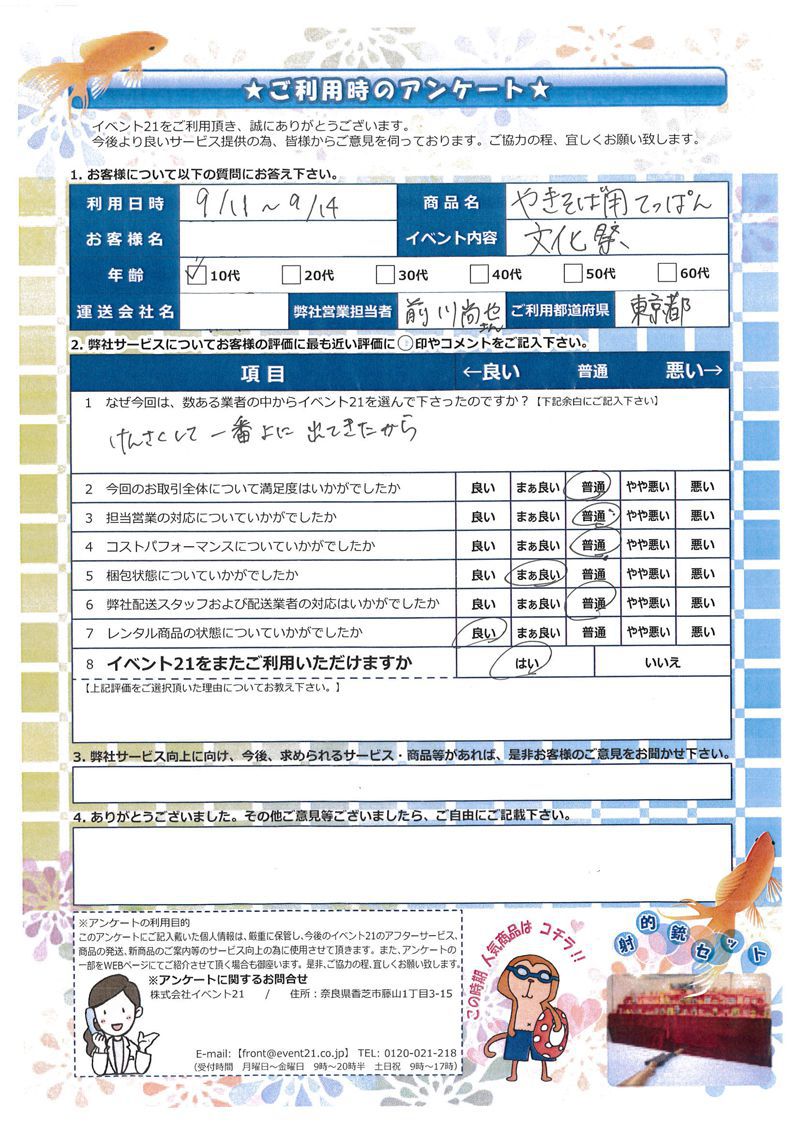 ★ご利用時のアンケート★
イベント21をご利用頂き、誠にありがとうございます。
今後より良いサービス提供の為、皆様からご意見を伺っております。ご協力の程、宜しくお願い致します。
1. お客様について以下の質問にお答え下さい。
利用日時 9/11～9/14 商品名 やきそば用てっぱん
お客様名 イベント内容 文化祭
年齢 10代 20代 30代 40代 50代 60代
運送会社名 弊社営業担当者 前川尚也さん ご利用都道府県 東京都
2. 弊社サービスについてお客様の評価に最も近い評価に○印やコメントをご記入下さい。
項目 ←良い 普通 悪い→
1 なぜ今回は、数ある業者の中からイベント21を選んで下さったのですか？【下記余白にご記入下さい】
けんさくして一番上に出てきたから
2 今回のお取引全体について満足度はいかがでしたか 良い まぁ良い 普通 やや悪い 悪い
3 担当営業の対応についていかがでしたか 良い まぁ良い 普通 やや悪い 悪い
4 コストパフォーマンスについていかがでしたか 良い まぁ良い 普通 やや悪い 悪い
5 梱包状態についていかがでしたか 良い まぁ良い 普通 やや悪い 悪い
6 弊社配送スタッフおよび配送業者の対応はいかがでしたか 良い まぁ良い 普通 やや悪い 悪い
7 レンタル商品の状態についていかがでしたか 良い まぁ良い 普通 やや悪い 悪い
8 イベント21をまたご利用いただけますか はい いいえ
【上記評価をご選択頂いた理由についてお教え下さい。】
3. 弊社サービス向上に向け、今後、求められるサービス・商品等があれば、是非お客様のご意見をお聞かせ下さい。
4. ありがとうございました。その他ご意見等ございましたら、ご自由にご記載下さい。
※アンケートの利用目的
このアンケートにご記入戴いた個人情報は、厳重に保管し、今後のイベント21のアフターサービス、
商品の発送、新商品のご案内等のサービス向上の為に使用させて頂きます。また、アンケートの
一部をWEBページにてご紹介させて頂く場合も御座います。是非、ご協力の程、宜しくお願い致します。
※アンケートに関するお問合せ
株式会社イベント21 / 住所：奈良県香芝市藤山1丁目3-15
E-mail:【front@event21.co.jp】 TEL: 0120-021-218
（受付時間 月曜日～金曜日 9時～20時半 土日祝 9時～17時）
この時期人気商品はコチラ!!
射的銃セット